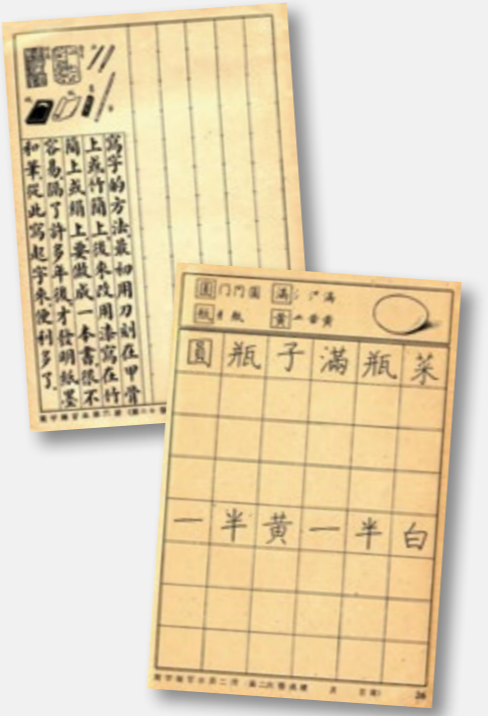 寫字的方法最初用刀刻在甲骨
上或竹簡上後來改用漆寫在竹
簡上或絹上要做成一本書很不
容易隔了許多年後才發明紙墨
和筆從此寫起字來便利多了
圓瓶子滿瓶菜
一半黃一半白
26